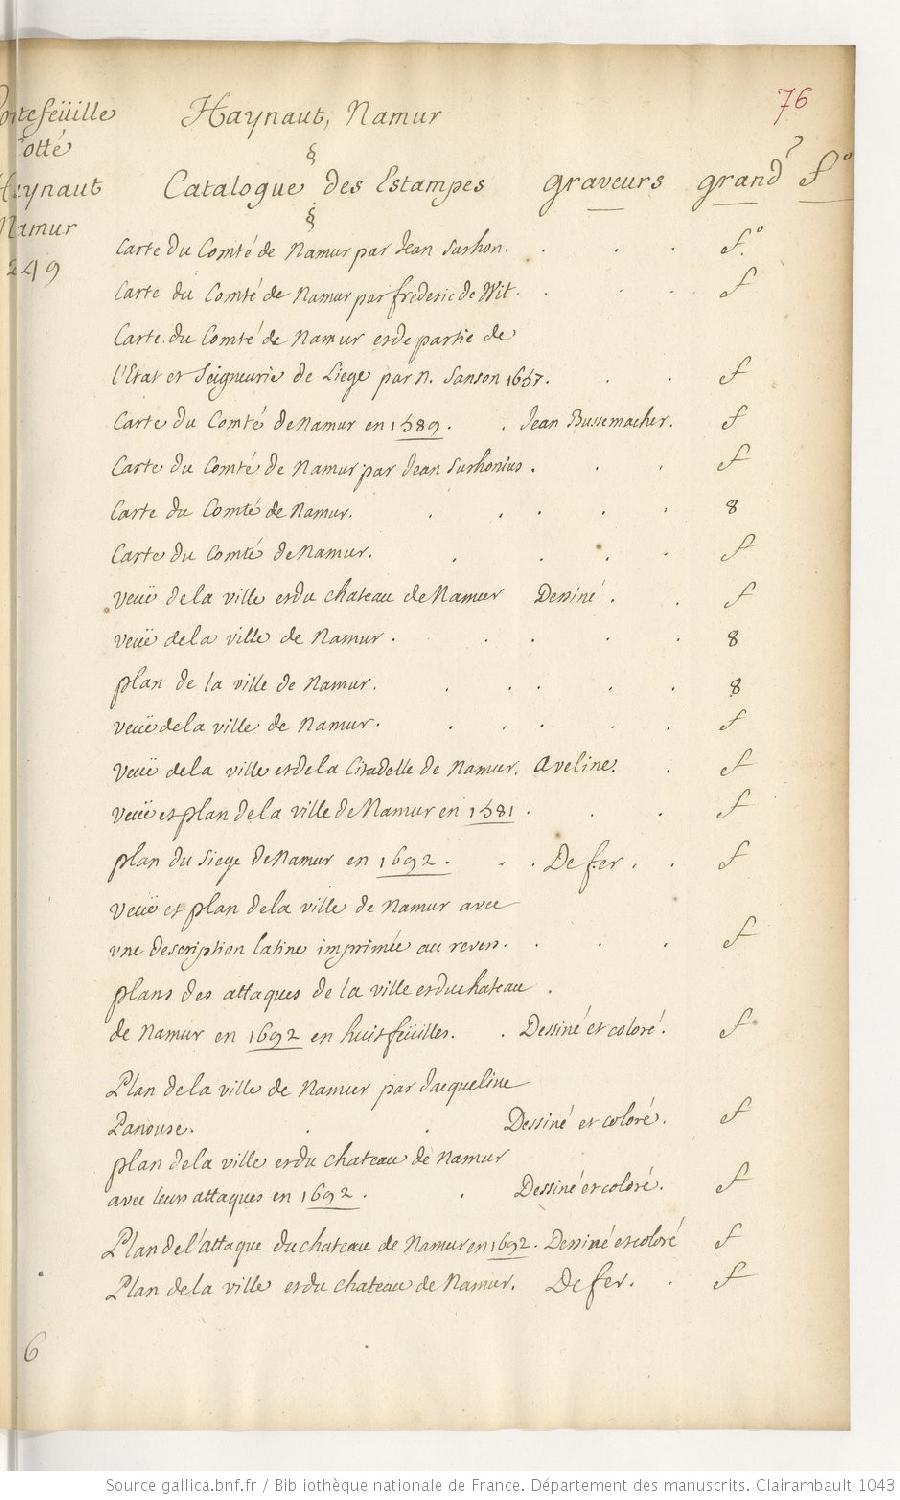 76
Portefeüille
Cotté
Haynaut
Namur
249
Haynaut, Namur
§
Catalogue des Estampes graveurs grand.r f.o
§
Carte du Comté de Namur par Jean Surhon. f.o
Carte du Comté de Namur par frederic de Wit. f
Carte du Comté de Namur et de partie de
l'Etat et Seigneurie de Liege par N. Sanson 1657. f
Carte du Comté de Namur en 1589. Jean Bussemacher. f
Carte du Comté de Namur par Jean Surhonius. f
Carte du Comté de Namur. 8
Carte du Comté de Namur. f
Veuë de la ville et du chateau de Namur Dessiné. f
Veuë de la ville de Namur. 8
plan de la ville de Namur. 8
Veuë de la ville de Namur. f
Veuë de la ville et de la Citadelle de Namur. Aveline. f
Veuë et plan de la ville de Namur en 1581. f
plan du siege de Namur en 1692. De fer. f
Veuë et plan de la ville de Namur avec
une description latine imprimée au revers. f
plans des attaques de la ville et du chateau
de Namur en 1692 en huit feüilles. Dessiné et coloré. f
Plan de la ville de Namur par Jacqueline
Panouse. Dessiné et coloré. f
plan de la ville et du chateau de Namur
avec leurs attaques en 1692. Dessiné et coloré. f
Plan de l'attaque du chateau de Namur en 1692. Dessiné et coloré f
Plan de la ville et du chateau de Namur. De fer. f
6
Source gallica.bnf.fr / Bibliothèque nationale de France. Département des manuscrits. Clairambault 1043